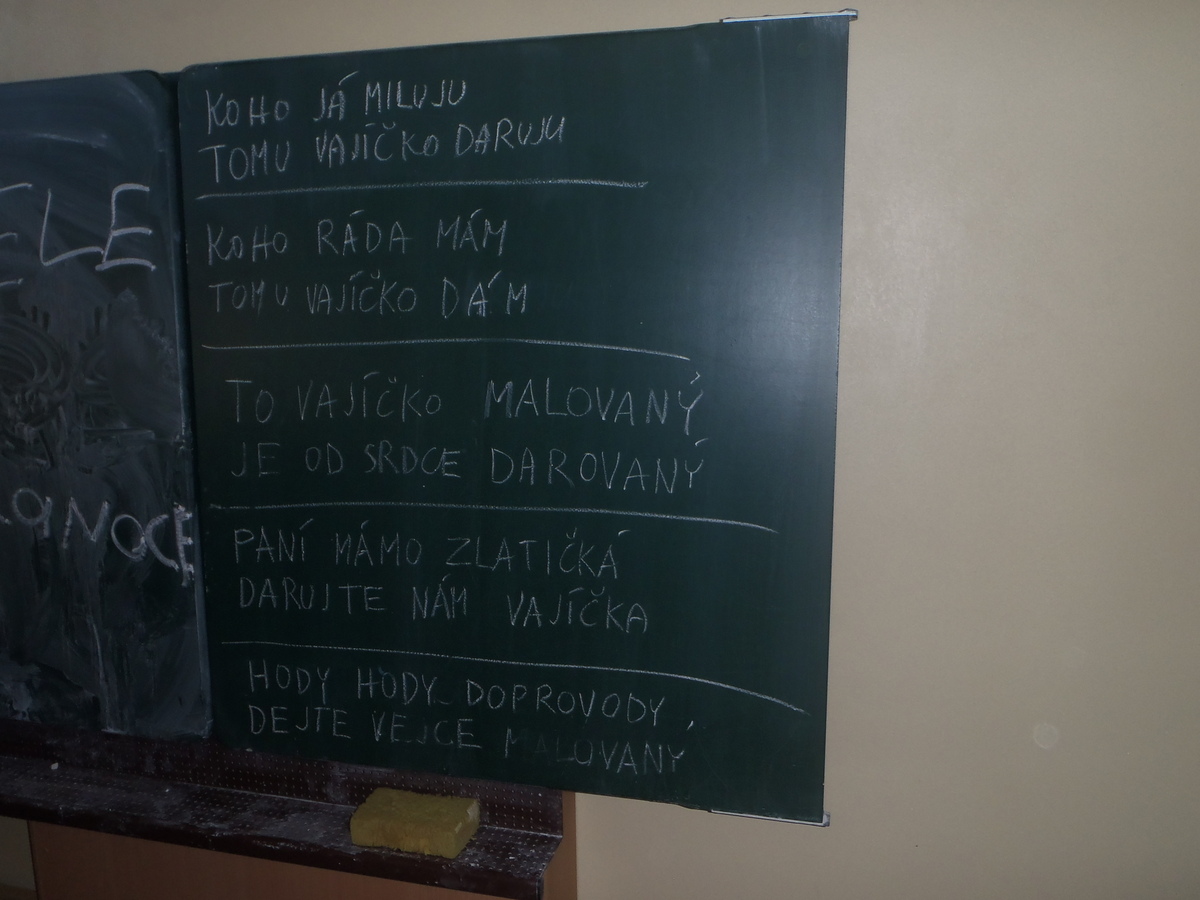 KOHO JÁ MILUJU
TOMU VAJÍČKO DARUJU
KOHO RÁDA MÁM
TOMU VAJÍČKO DÁM
TO VAJÍČKO MALOVANÝ
JE OD SRDCE DAROVANÝ
PANÍ MÁMO ZLATIČKÁ
DARUJTE NÁM VAJÍČKA
HODY HODY DOPROVODY
DEJTE VEJCE MALOVANÝ